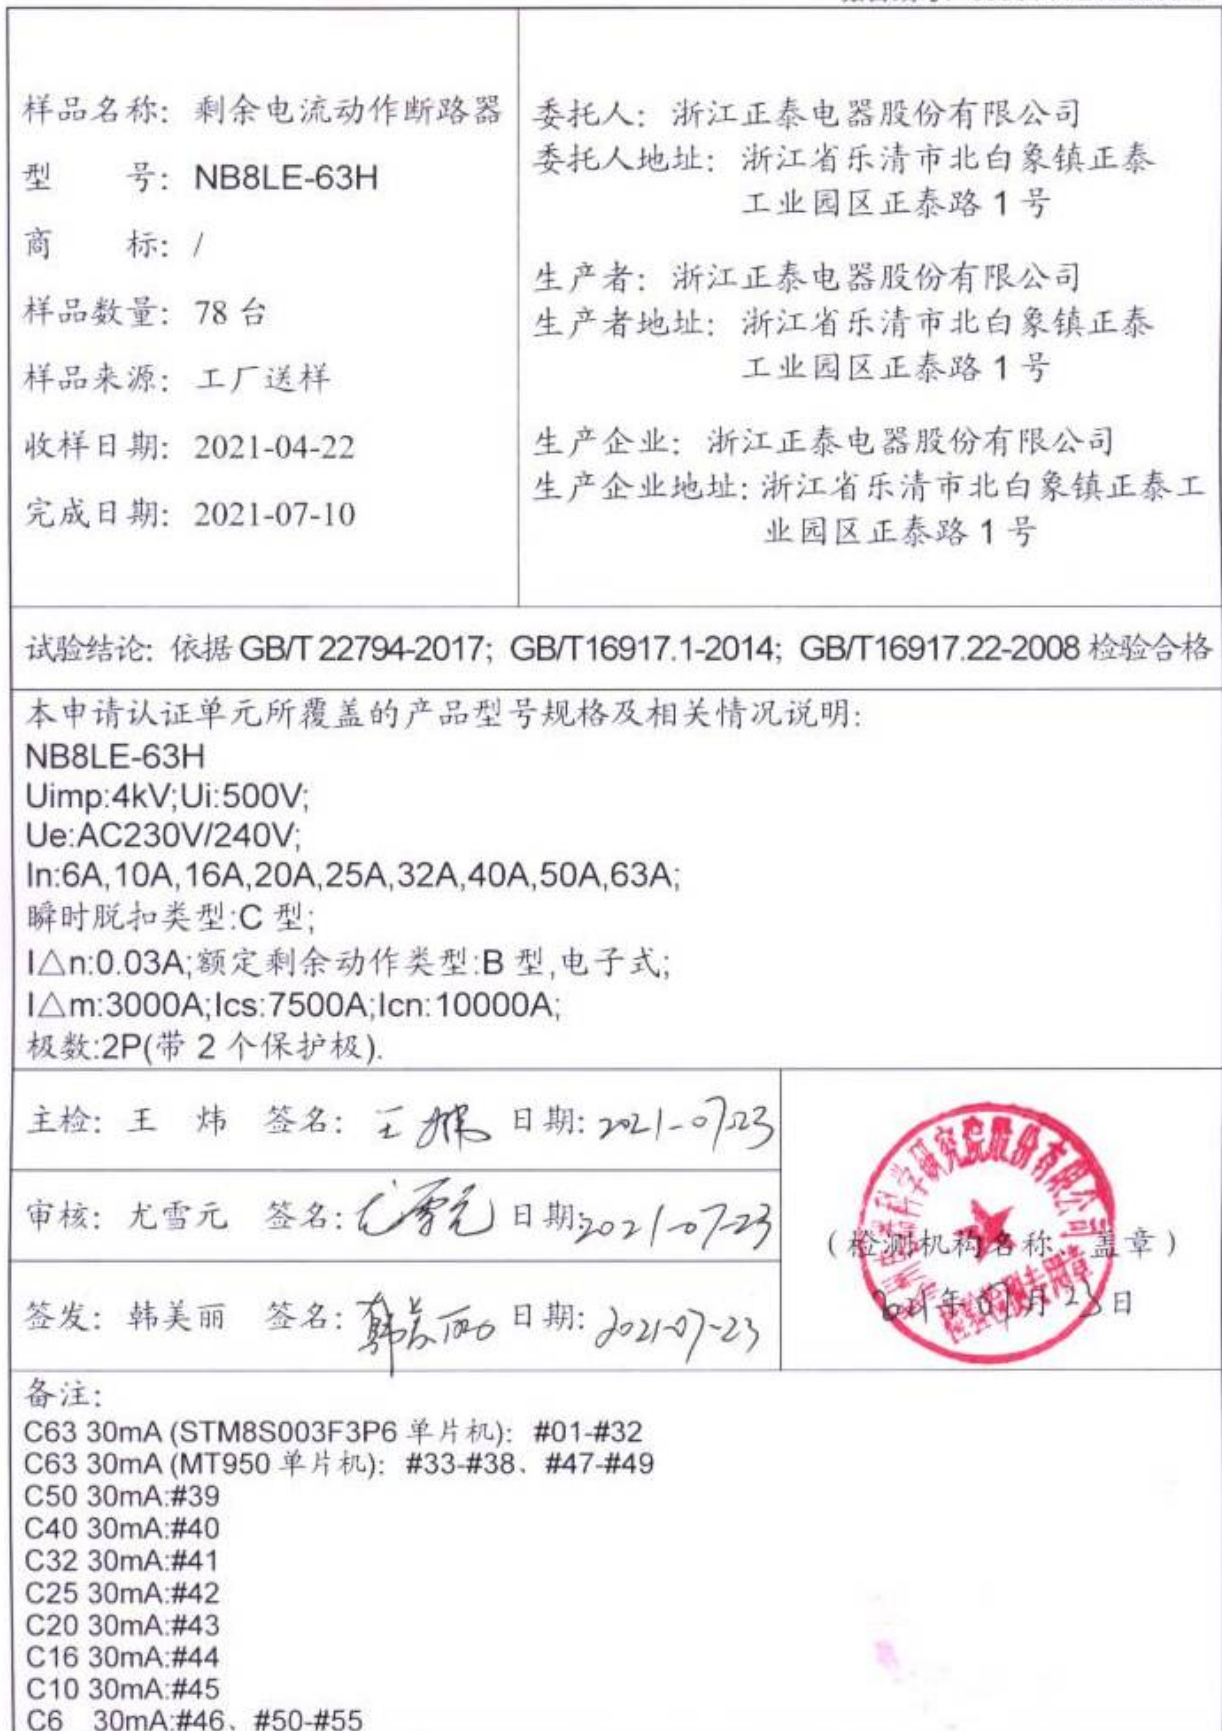 样品名称: 剩余电流动作断路器
型 号: NB8LE-63H
商 标: /
样品数量: 78 台
样品来源: 工厂送样
收样日期: 2021-04-22
完成日期: 2021-07-10
委托人: 浙江正泰电器股份有限公司
委托人地址: 浙江省乐清市北白象镇正泰
工业园区正泰路 1 号
生产者: 浙江正泰电器股份有限公司
生产者地址: 浙江省乐清市北白象镇正泰
工业园区正泰路 1 号
生产企业: 浙江正泰电器股份有限公司
生产企业地址: 浙江省乐清市北白象镇正泰工
业园区正泰路 1 号
试验结论: 依据 GB/T 22794-2017; GB/T16917.1-2014; GB/T16917.22-2008 检验合格
本申请认证单元所覆盖的产品型号规格及相关情况说明:
NB8LE-63H
Uimp:4kV;Ui:500V;
Ue:AC230V/240V;
In:6A,10A,16A,20A,25A,32A,40A,50A,63A;
瞬时脱扣类型:C 型;
I△n:0.03A;额定剩余动作类型:B 型,电子式;
I△m:3000A;Ics:7500A;Icn:10000A;
极数:2P(带 2 个保护极).
主检: 王 炜 签名: 王炜 日期: 2021-07-23
审核: 尤雪元 签名: 尤雪元 日期: 2021-07-23
签发: 韩美丽 签名: 韩美丽 日期: 2021-07-23
科学研究院股份有限公司
(检测机构名称、盖章)
2021年07月23日
检验检测专用章
备注:
C63 30mA (STM8S003F3P6 单片机): #01-#32
C63 30mA (MT950 单片机): #33-#38、#47-#49
C50 30mA:#39
C40 30mA:#40
C32 30mA:#41
C25 30mA:#42
C20 30mA:#43
C16 30mA:#44
C10 30mA:#45
C6 30mA:#46、#50-#55